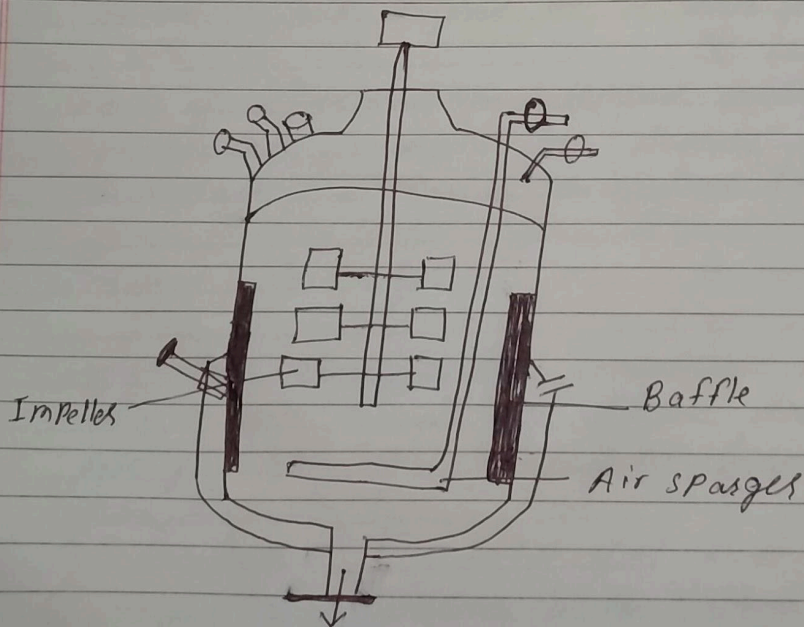 Impeller
Baffle
Air sparger